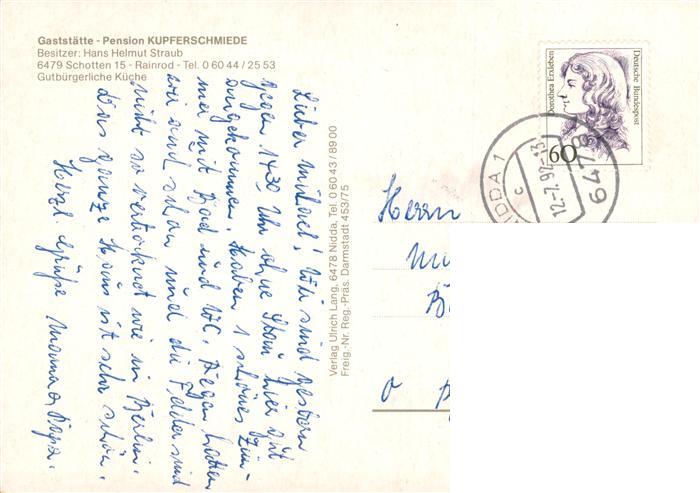 Gaststätte - Pension KUPFERSCHMIEDE
Besitzer: Hans Helmut Straub
6479 Schotten 15 - Rainrod - Tel. 0 60 44 / 25 53
Gutbürgerliche Küche
Lieber Michael! Wir sind gestern
gegen 14³⁰ Uhr ohne Stau hier gut
angekommen. Haben 1 schönes Zim-
mer mit Bad und WC. Regen hatten
wir auch schon und die Felder sind
nicht so vertrocknet wie in Berlin.
Das ganze Haus ist sehr schön.
Herzl. Grüße Mama & Papa.
Verlag Ulrich Lang, 6478 Nidda, Tel. 0 60 43 / 89 00
Freig.-Nr. Reg.-Präs. Darmstadt 453/75
Dorothea Erxleben
Deutsche Bundespost
60
6478
NIDDA 1
c
12.-7.92-13
Herrn